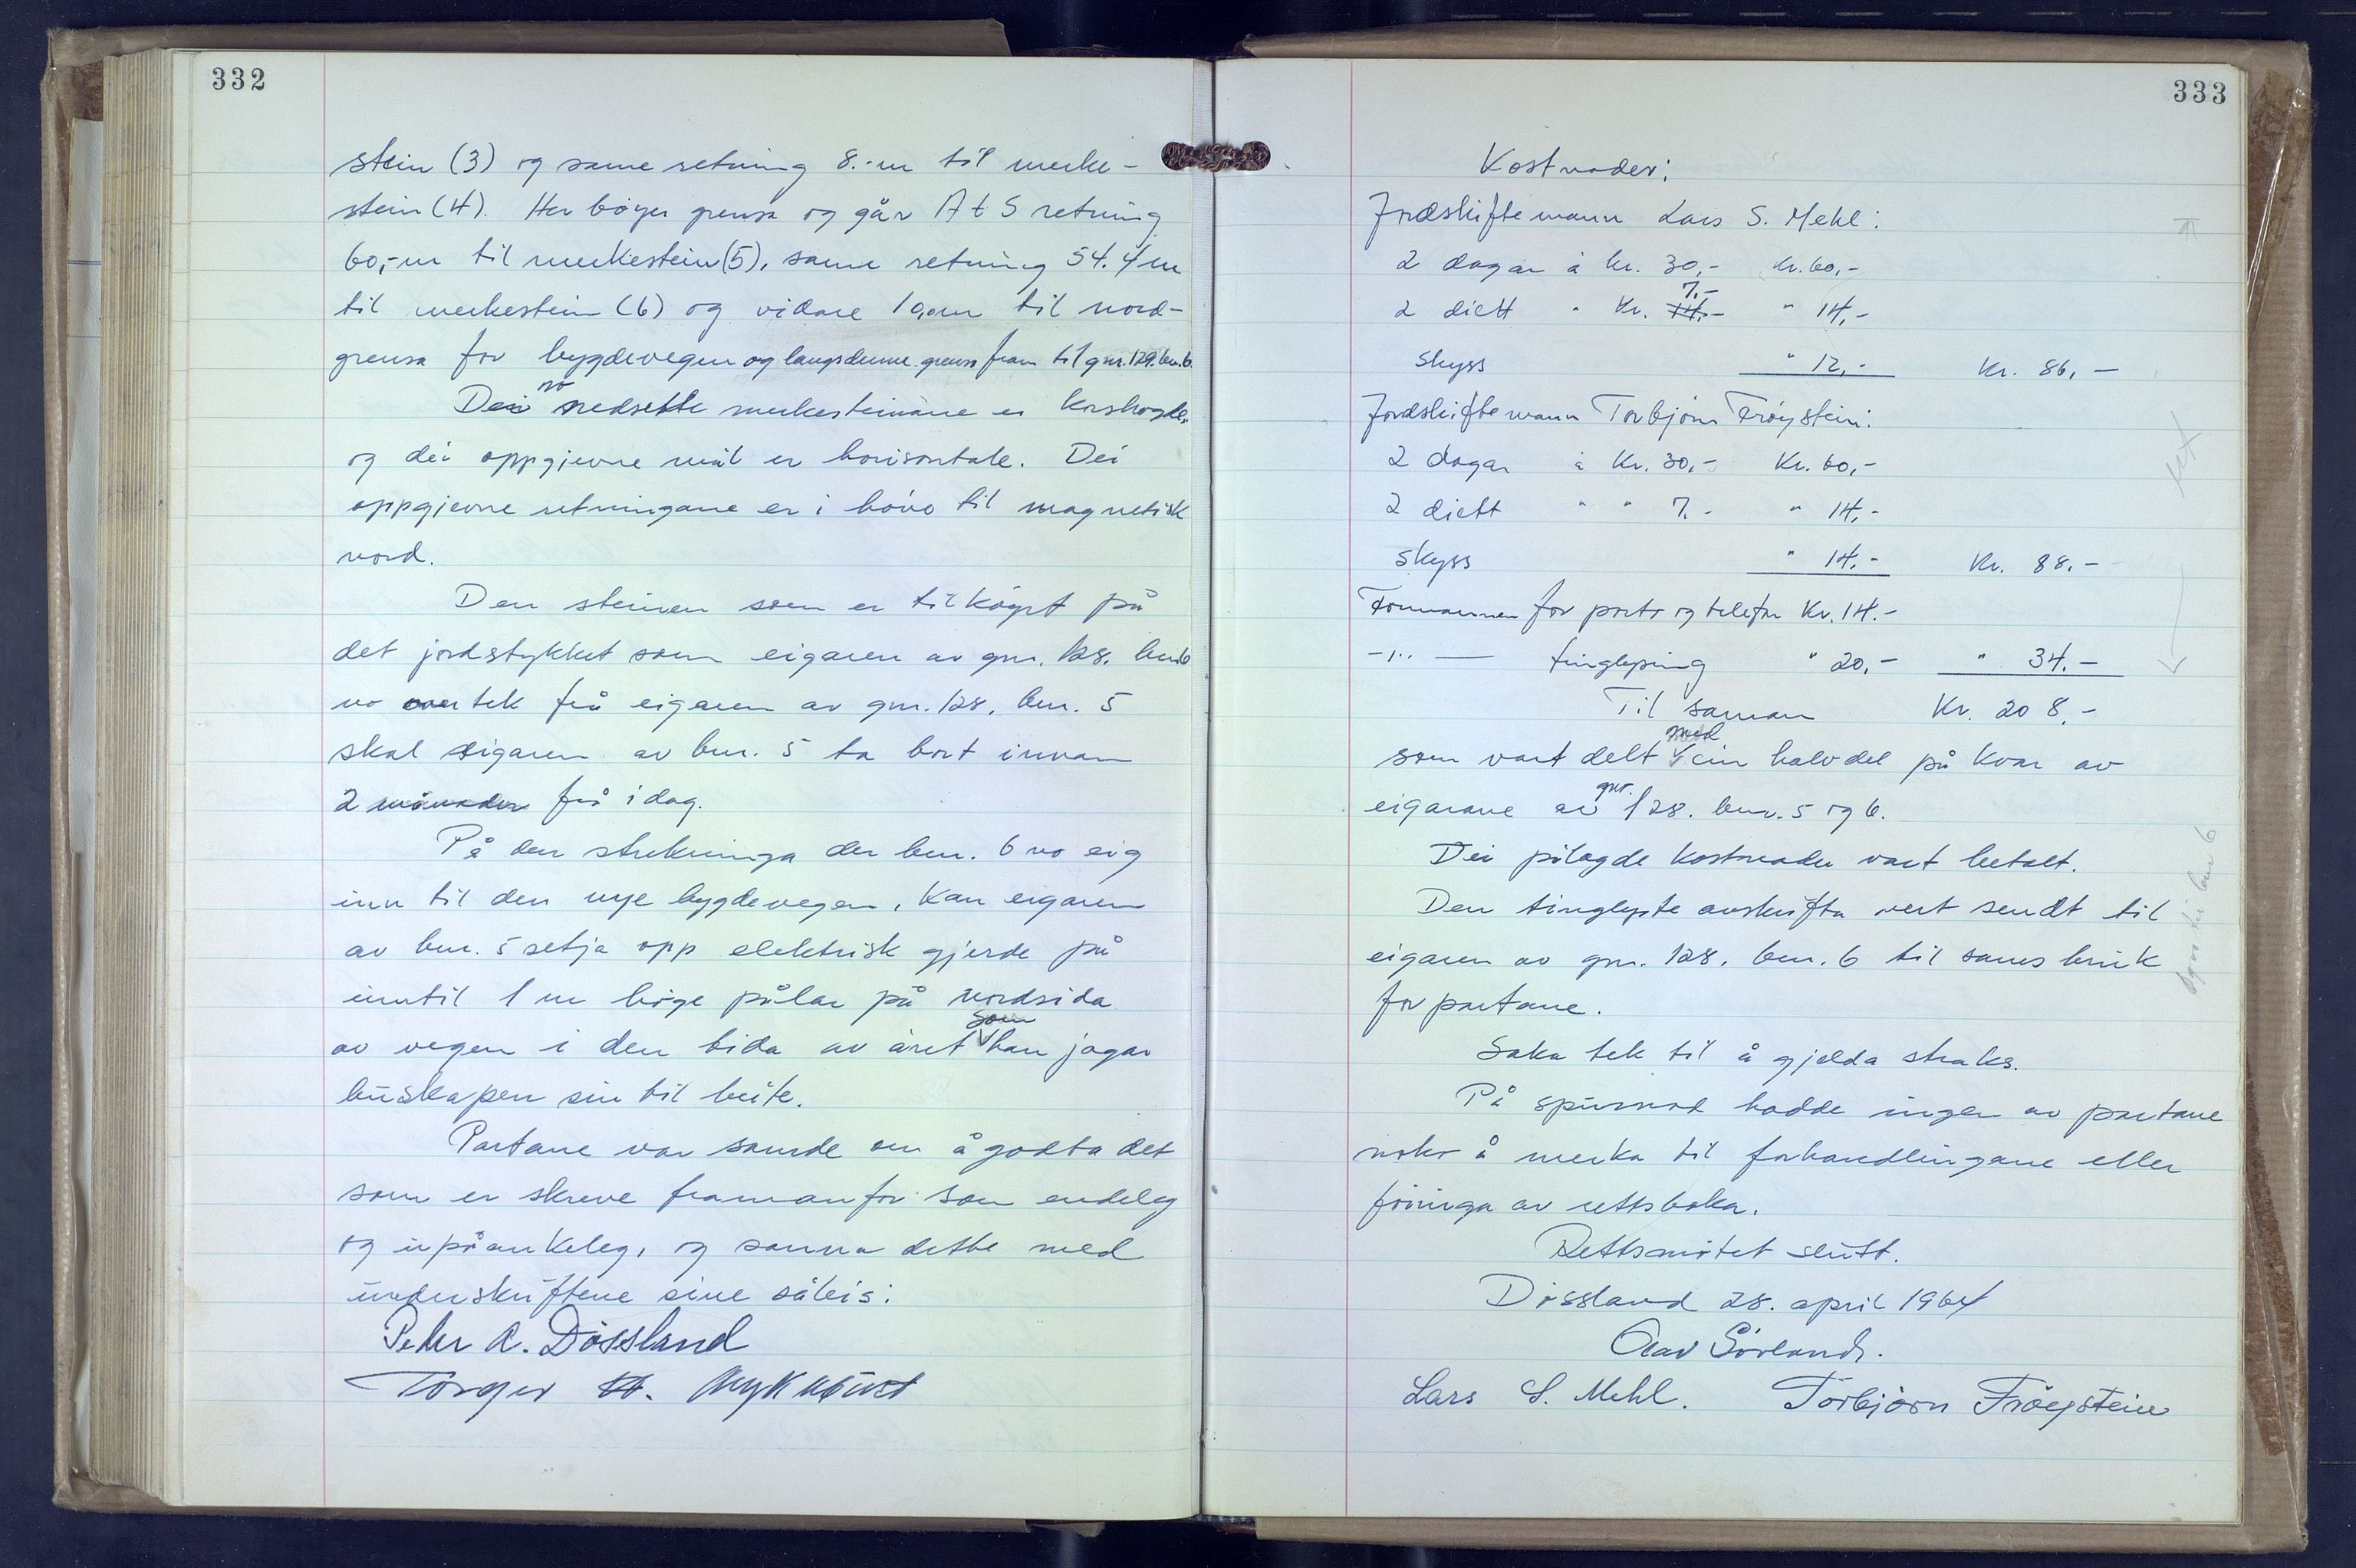 332
stein (3) og same retning 8.-m til merke-
stein (4). Her bøyer grensa og går A t S retning
60,-m til merkestein (5), same retning 54.4 m
til merkestein (6) og vidare 10,0m til nord-
grensa for bygdevegen og langs denne grensa fram til gnr. 129. bnr. 6.
Dei no nedsette merkesteinane er krosshogde,
og dei oppgjevne mål er horisontale. Dei
oppgjevne retningane er i høve til magnetisk
nord.
Den steinen som er tilkøyrt på
det jordstykket som eigaren av gnr. 128. bnr 6
no overtek frå eigaren av gnr. 128. bnr. 5
skal eigaren av bnr. 5 ta bort innan
2 månader frå i dag.
På den strekninga der bnr. 6 no eig
inn til den nye bygdevegen, kan eigaren
av bnr. 5 setja opp elektrisk gjerde på
inntil 1 m høge pålar på nordsida
av vegen i den tida av året som han jagar
buskapen sin til beite.
Partane var samde om å godta det
som er skreve framanfor som endeleg
og upåankeleg, og sanna dette med
underskriftene sine såleis:
Peder A. Døssland
Torger H. Myklebust
333
Kostnader:
Jordskiftemann Lars S. Mehl:
2 dagar à kr. 30,- kr. 60,-
2 diett " kr. 14,- 7,- " 14,-
skyss " 12,- kr. 86,-
Jordskiftemann Torbjørn Frøystein:
2 dagar à kr. 30,- kr. 60,-
2 diett " " 7.- " 14,-
skyss " 14,- kr. 88,-
Formannen for porto og telefon kr. 14.-
-"- tinglysing " 20,- " 34.-
Til saman kr. 208,-
som vart delt med ein halvdel på kvar av
eigarane av gnr. 128. bnr. 5 og 6.
Dei pålagde kostnader vart betalt.
Den tinglyste avskrifta vert sendt til
eigaren av gnr. 128. bnr. 6 til sams bruk
for partane.
Saka tek til å gjelda straks.
På spursmål hadde ingen av partane
noko å merka til forhandlingane eller
føringa av rettsboka.
Rettsmøtet slutt.
Døssland 28. april 1964
Olav Sørland.
Lars S. Mehl. Torbjørn Frøystein